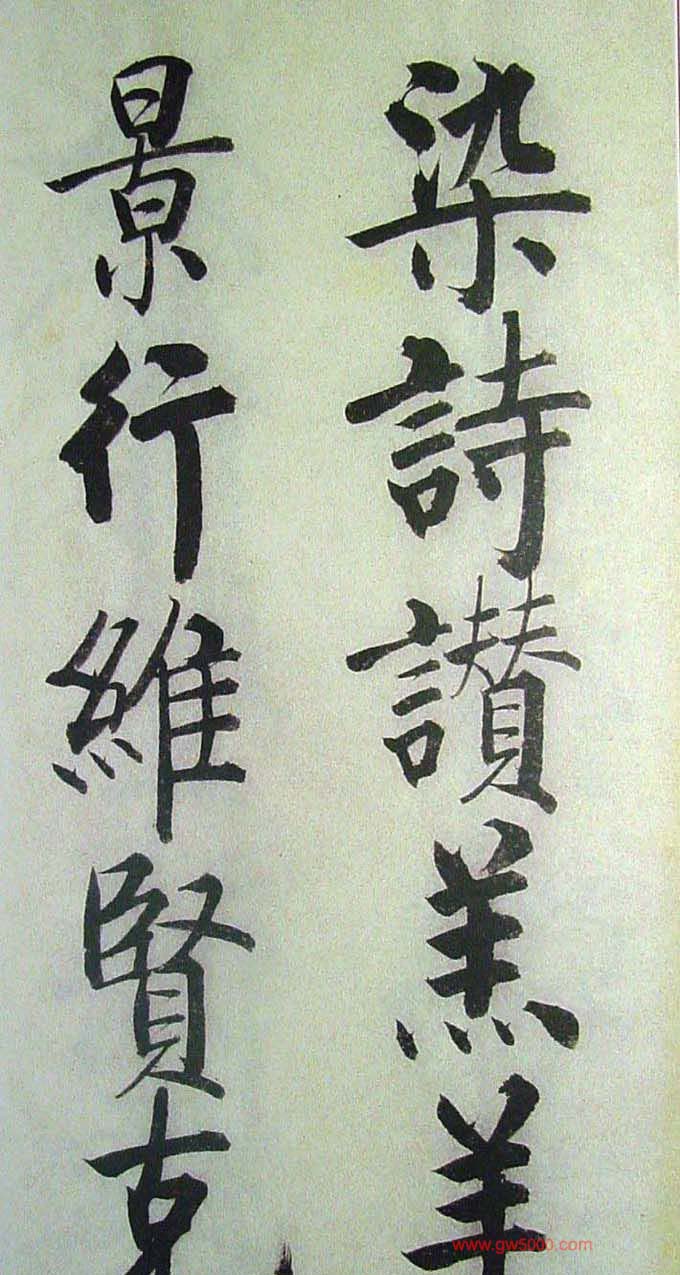 染詩讃羔羊
景行維賢克
www.gw5000.com